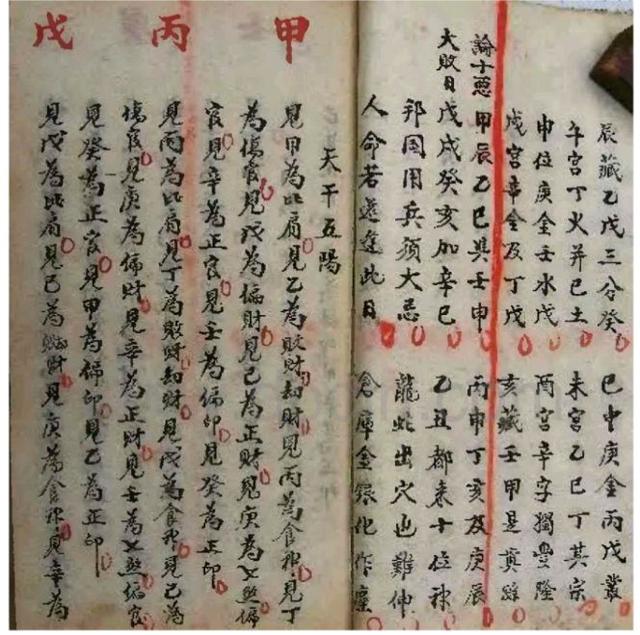 辰藏乙戊三分癸 巳中庚金丙戊叢
午宮丁火并己土 未宮乙己丁其宗
申位庚金壬水戊 酉宮辛字獨豐隆
戌宮辛金及丁戊 亥藏壬甲是真踪
論十惡
大敗日
甲辰乙巳與壬申 丙申丁亥及庚辰
戊戌癸亥加辛巳 乙丑都來十位神
邦国用兵須大忌 龍蛇出穴也難伸
人命若還逢此日 倉庫金銀化作塵
天干五陽
甲
見甲為比肩見乙為敗財刼財見丙為食神見丁
為傷官見戊為偏財見己為正財見庚為七煞偏
官見辛為正官見壬為偏印見癸為正印
丙
見丙為比肩見丁為敗財刼財見戊為食神見己為
傷官見庚為偏財見辛為正財見壬為七煞偏官
見癸為正官見甲為偏印見乙為正印
戊
見戊為比肩見己為財見庚為食神見辛為